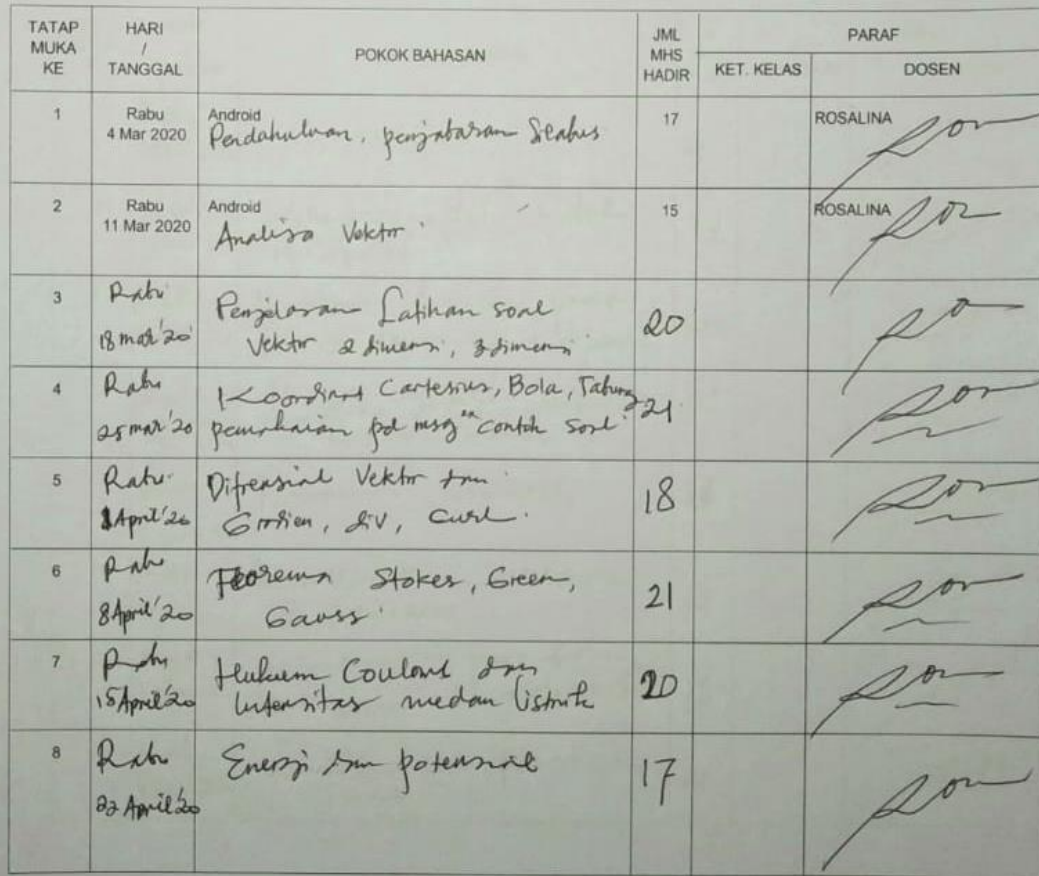 TATAP MUKA KE
HARI / TANGGAL
POKOK BAHASAN
JML MHS HADIR
PARAF
KET. KELAS
DOSEN
1
Rabu
4 Mar 2020
Android
Pendahuluan, penjabaran Silabus
17
ROSALINA
2
Rabu
11 Mar 2020
Android
Analisa Vektor
15
ROSALINA
3
Rabu
18 mar'20
Penjelasan Latihan soal
Vektor 2 dimensi, 3 dimensi
20
4
Rabu
25 mar'20
Koordinat Cartesius, Bola, Tabung
pemakaian pd msg" contoh soal
21
5
Rabu
1 April'20
Difrensial Vektor dan
Grdien, div, curl.
18
6
Rabu
8 April'20
Teorema Stokes, Green,
Gauss
21
7
Rabu
15 April'20
Hukum Coulomb dan
Intensitas medan listrik
20
8
Rabu
22 April'20
Energi dan potensial
17